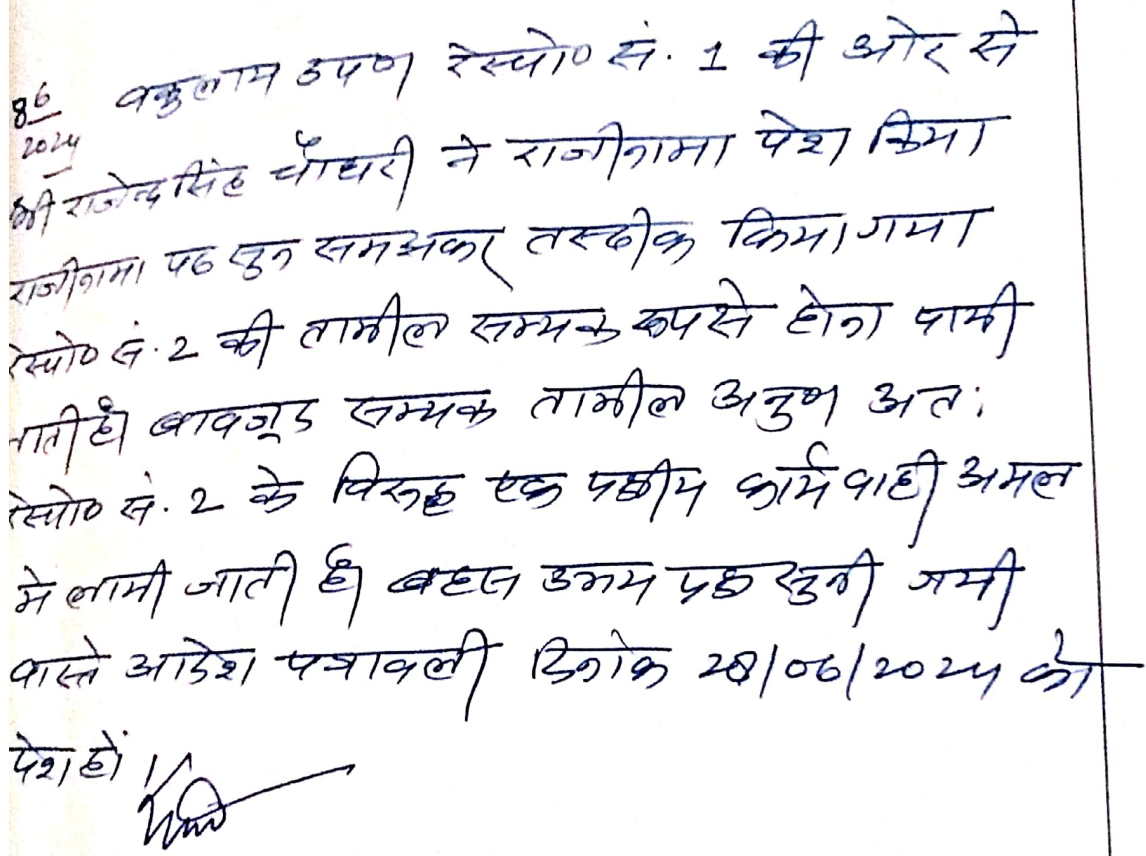 8/6
2024
वकुलाय उपण रेस्पो० सं. 1 की ओर से
श्री राजेन्द्र सिंह चौधरी ने राजीनामा पेश किया
राजीनामा पढ सुन समझकर तस्दीक किया गया
रेस्पो० सं. 2 की तामील सम्यक रूप से होना पायी
जाती है। बावजूद सम्यक तामील अनुप० अत:
रेस्पो० सं. 2 के विरुद्ध एक पक्षीय कार्यवाही अमल
मे लायी जाती है। बहस उभय पक्ष सुनी गयी
वास्ते आदेश पत्रावली दिनांक 28/06/2024 को
पेश हों।